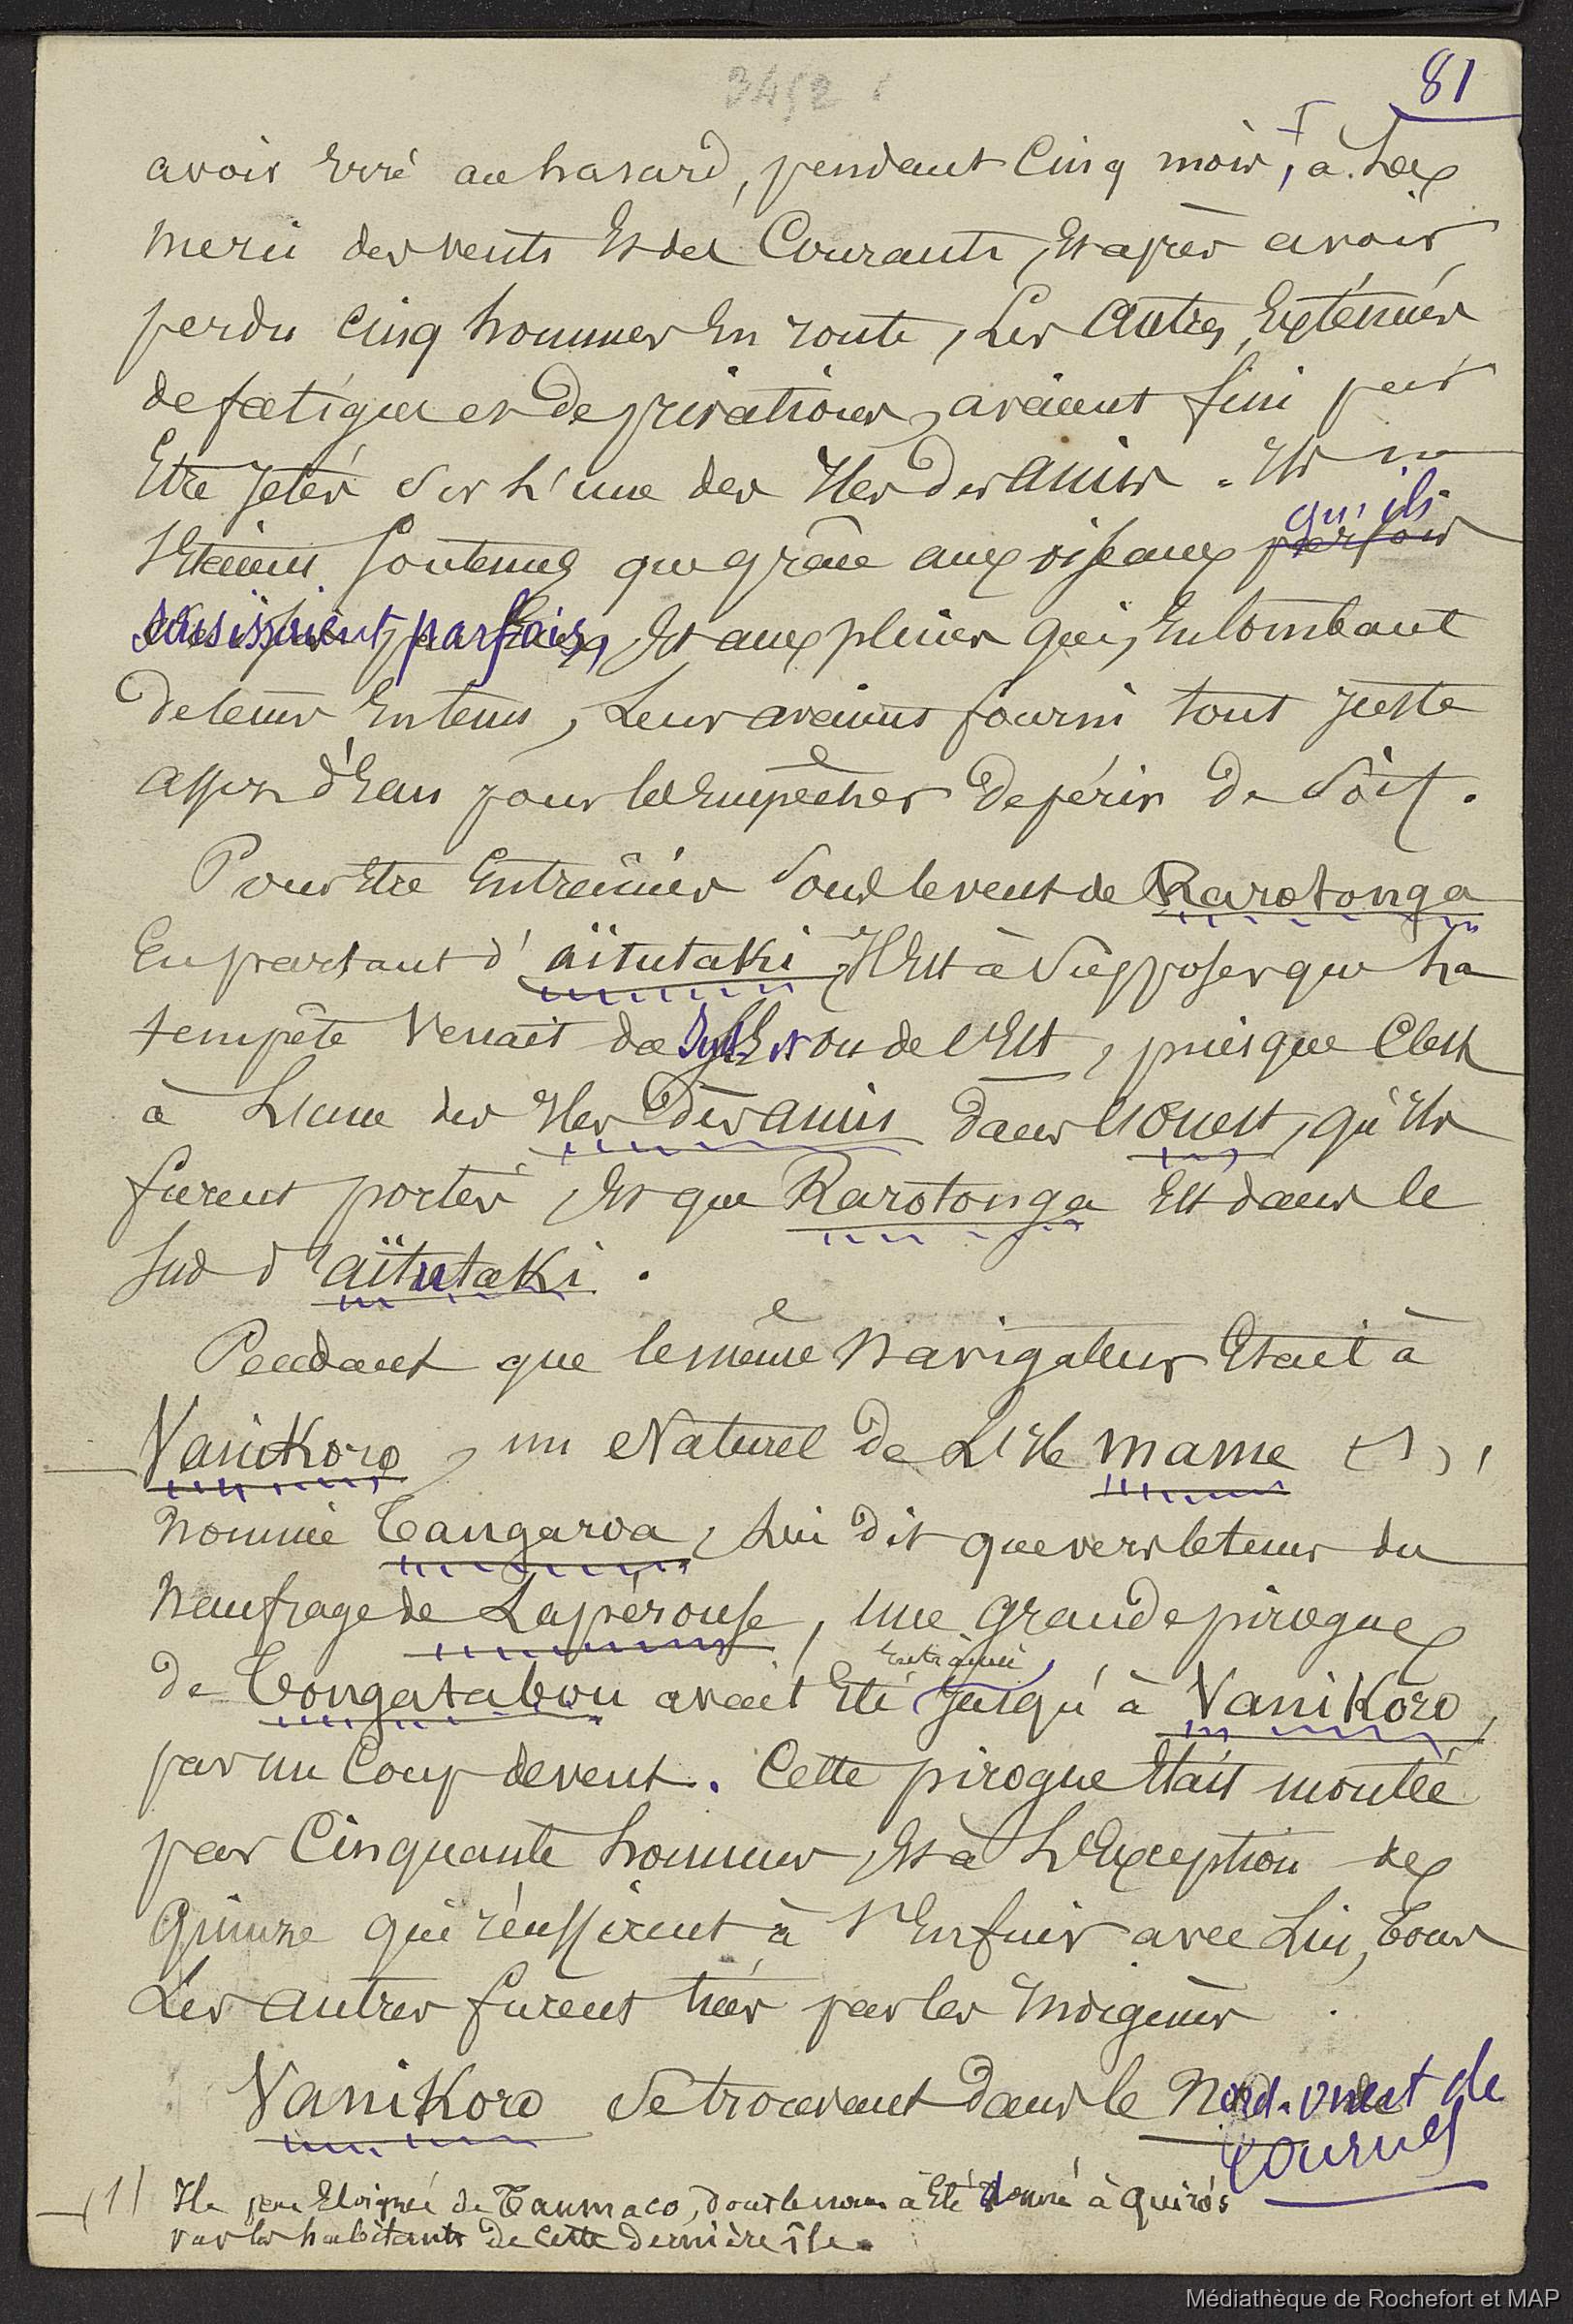 3452
81
avoir Erré au hasard, pendant Cinq mois, à La
merci des vents Et des Courants, Et après avoir
perdu cinq hommes En route, Les autres, Exténués
de fatigue et de privations, avaient fini par
Etre Jetés sur L'une des Iles des amis. Ils ne
s'Etaient soutenus que grâce aux oiseaux parfois qu'ils
saisissaient parfois, Et aux pluies qui, En tombant
de tems En tems, Leur avaient fourni tout juste
assez d'Eau pour les Empêcher de périr de Soif.
Pour Etre Entraînés sous le vent de Rarotonga
En partant d'aïtutaki, Il Est à Supposer que La
tempête Venait du Sud-Est ou de l'Est, puisque C'est
à L'une des Iles des amis dans l'Ouest, qu'Ils
furent portés, Et que Rarotonga Est dans le
Sud d'aïtutaki.
Pendant que le même Navigateur Etait à
Vanikoro, un Naturel de L'Ile mame (1),
Nommé Tangaroa, Lui dit que vers le tems du
Naufrage de Lapérouse, une grande pirogue
de Tongatabou avait Eté Entraînée, Jusqu'à Vanikoro,
par un Coup de vent. Cette pirogue Etait montée
par Cinquante hommes, Et à L'Exception de
Quinze qui réussirent à s'Enfuir avec Lui, tous
Les autres furent tués par les Indigènes.
Vanikoro se trouvant dans le Nord-ouest de
(1) Ile peu Eloignée de Taumaco, dont le nom a Eté donné à Quirós
par les habitants de cette dernière île.
Médiathèque de Rochefort et MAP